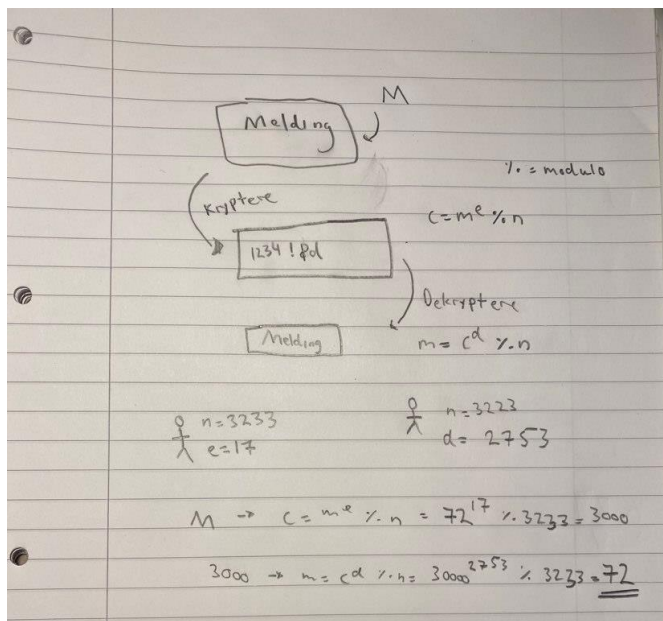 M
Melding
% = modulo
Kryptere
c = m^e % n
1234!&d
Dekryptere
Melding
m = c^d % n
n = 3233
e = 17
n = 3223
d = 2753
M → c = m^e % n = 72^17 % 3233 = 3000
3000 → m = c^d % n = 3000^2753 % 3233 = 72